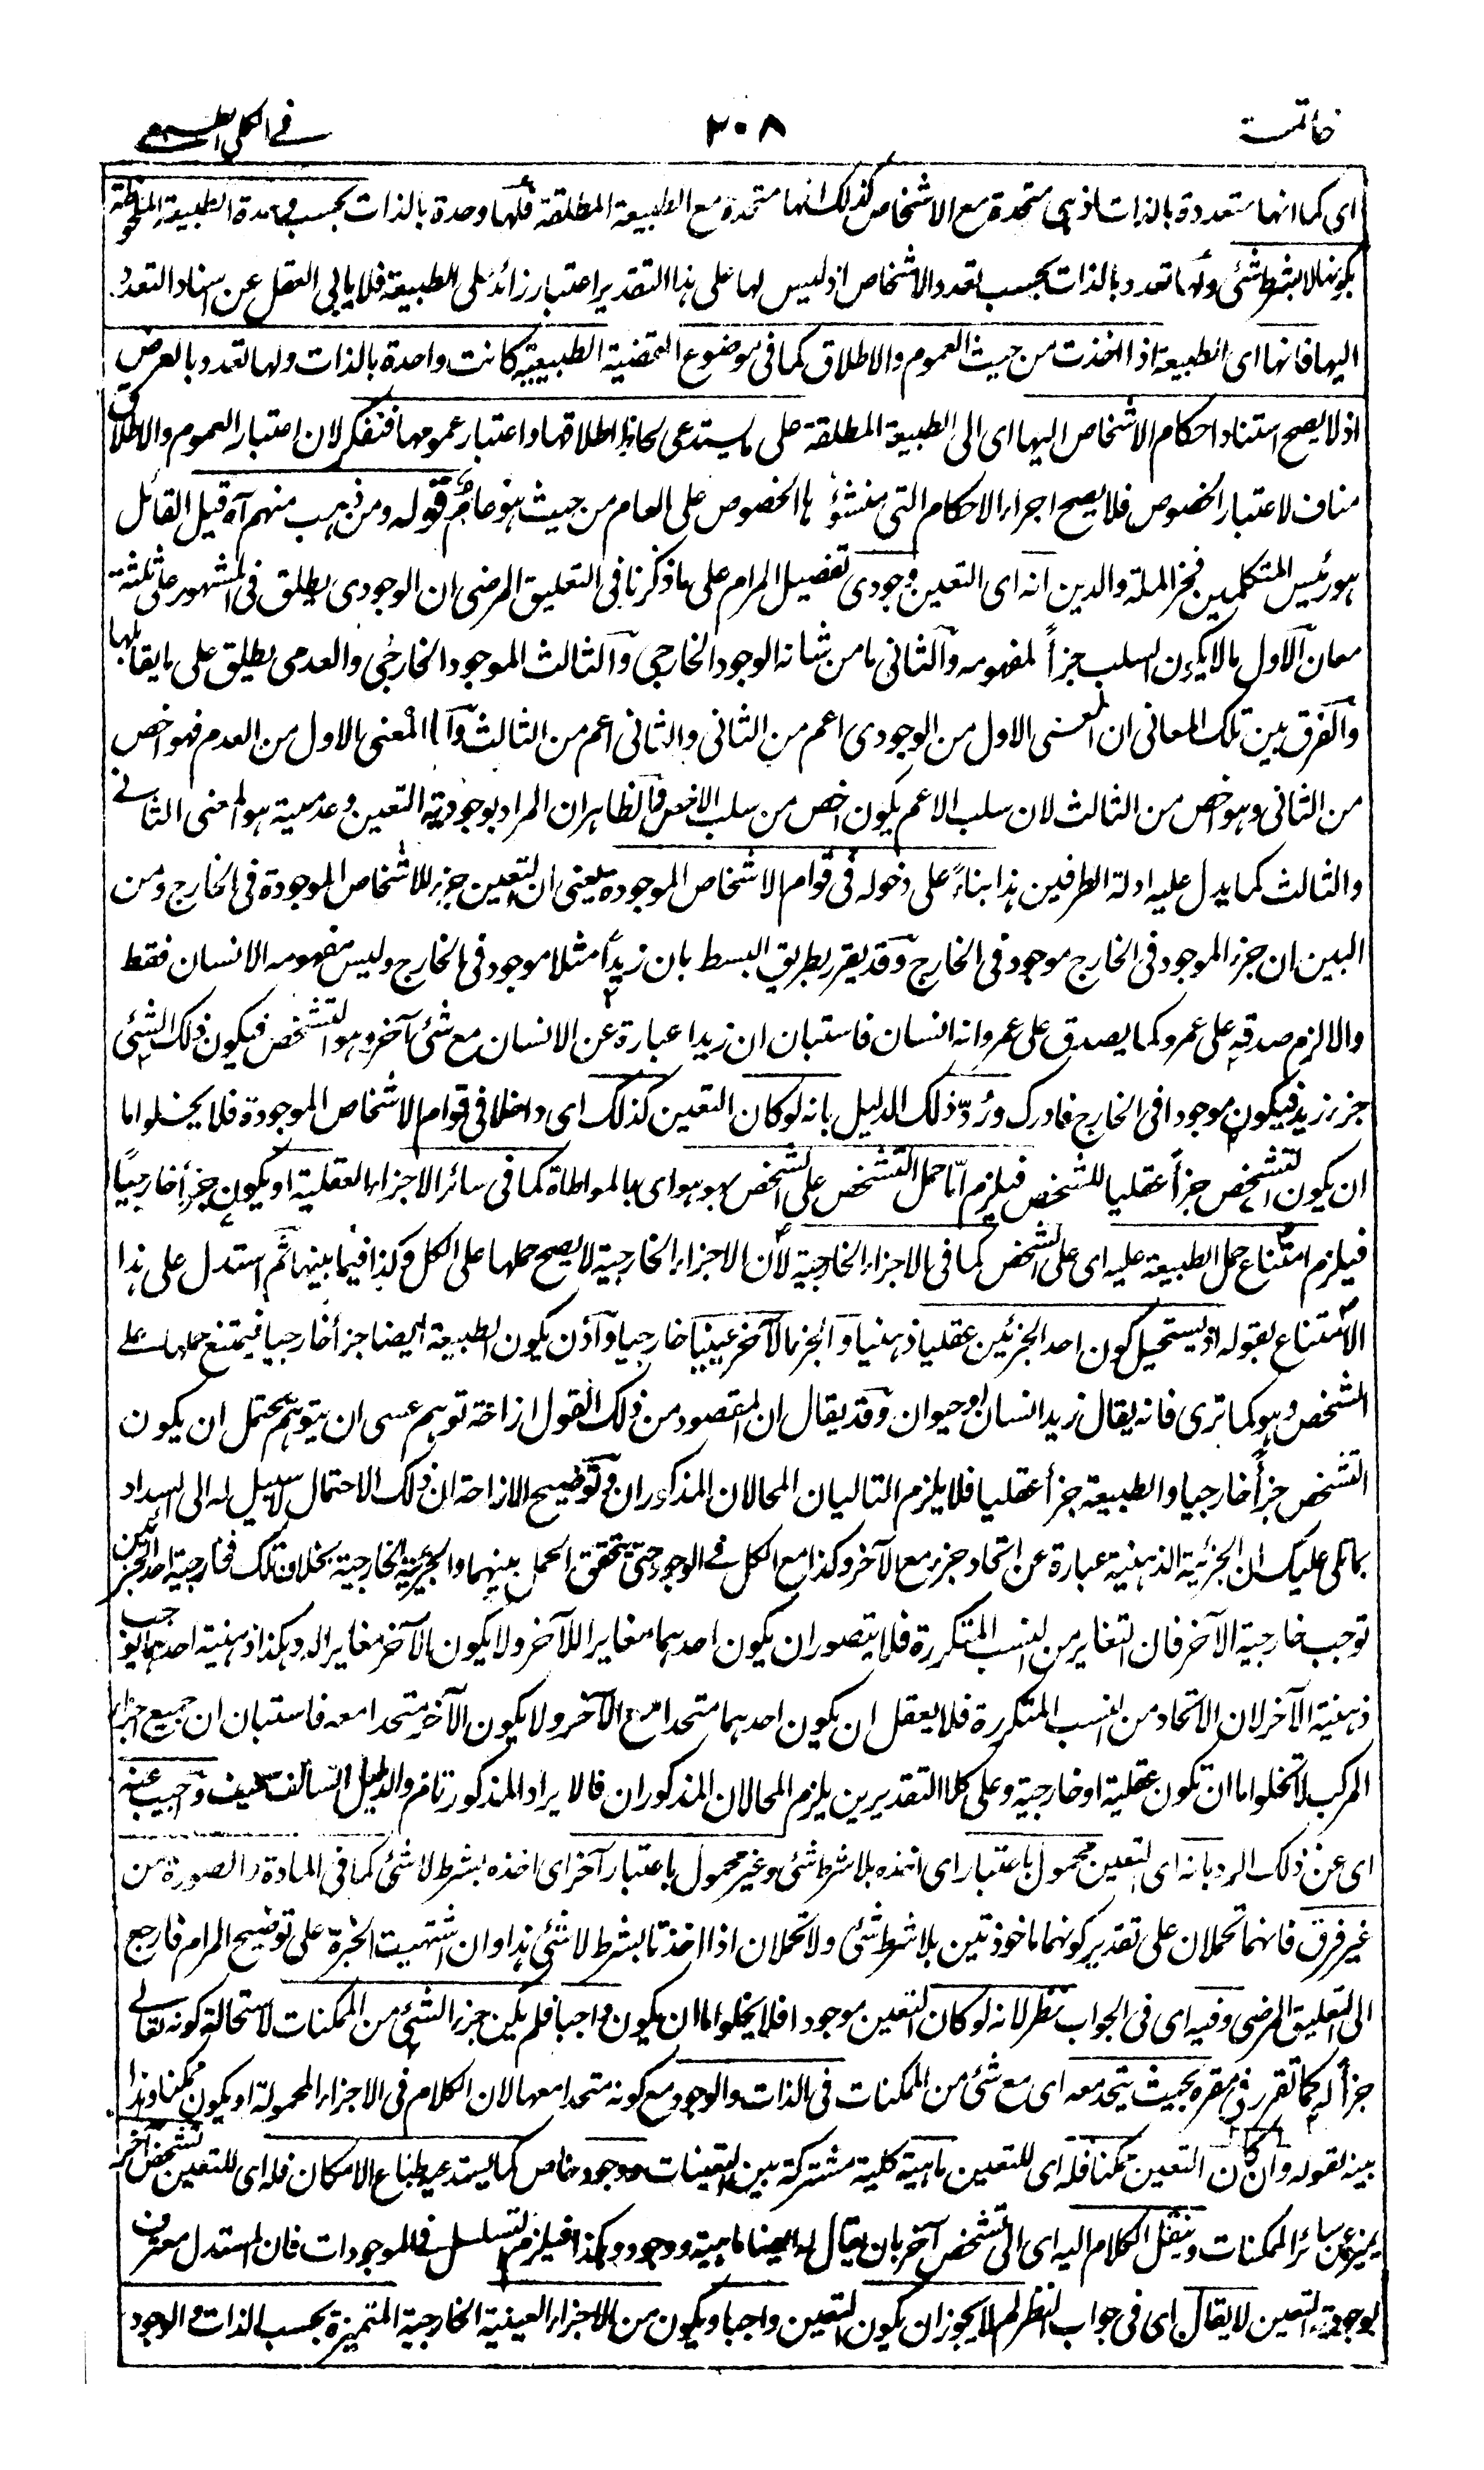 خاتمة
٣٠٨
في الكلي الطبيعي
اي كما انها متعددة بالذات اذ هي متحدة مع الاشخاص كذلك انها متحدة مع الطبيعة المطلقة فلها وحدة بالذات بحسب وحدة الطبيعة الملحوظة
بكونها لا بشرط شئ ولها تعدد بالذات بحسب تعدد الاشخاص اذ ليس لها على هذا التقدير اعتبار زائد على الطبيعة فلا يابى العقل عن اسناد التعدد
اليها فانها اى الطبيعة اذا اخذت من حيث العموم والاطلاق كما فى موضوع القضية الطبيعية كانت واحدة بالذات ولها تعدد بالعرض
اذ لا يصح استناد احكام الاشخاص اليها اى الى الطبيعة المطلقة على ما يستدعى لحاظ اطلاقها واعتبار عمومها فتفكر لان اعتبار العموم والاطلاق
مناف لاعتبار الخصوص فلا يصح اجراء الاحكام التى منشؤها الخصوص على العام من حيث هو عام قوله ومن ذهب منهم آه قيل القائل
هو رئيس المتكلمين فخر الملة والدين انه اى التعين وجودى تفصيل المرام على ما ذكرنا فى التعليق المرضى ان الوجودى يطلق فى المشهور على ثلثة
معان الاول ما لا يكون السلب جزأ لمفهومه والثانى ما من شانه الوجود الخارجى والثالث الموجود الخارجى والعدمى يطلق على ما يقابلها
والفرق بين تلك المعانى ان المعنى الاول من الوجودى اعم من الثانى والثانى اعم من الثالث واما المعنى الاول من العدم فهو اخص
من الثانى وهو اخص من الثالث لان سلب الاعم يكون اخص من سلب الاخص فالظاهر ان المراد بوجودية التعين وعدمية هو المعنى الثانى
والثالث كما يدل عليه ادلة الطرفين هذا بناءً على دخوله فى قوام الاشخاص الموجودة يعنى ان التعين جزء للاشخاص الموجودة فى الخارج ومن
البين ان جزء الموجود فى الخارج موجود فى الخارج وقد يقرر بطريق البسط بان زيداً مثلا موجود فى الخارج وليس مفهومه الانسان فقط
والا لزم صدقه على عمرو كما يصدق على عمرو انه انسان فاستبان ان زيدا عبارة عن الانسان مع شئ آخر وهو التشخص فيكون ذلك الشئ
جزء زيد فيكون موجودا فى الخارج فادرك ورُدّ ذلك الدليل بانه لو كان التعين كذلك اى داخلا فى قوام الاشخاص الموجودة فلا يخلو اما
ان يكون التشخص جزأً عقليا للشخص فيلزم امّا حمل التشخص على الشخص بهو هو اى بالمواطاة كما فى سائر الاجزاء العقلية او يكون جزأ خارجيًا
فيلزم امتناع حمل الطبيعة عليه اى على الشخص كما فى الاجزاء الخارجية لان الاجزاء الخارجية لا يصح حملها على الكل وكذا فيما بينها ثم استدل على هذا
الامتناع بقوله اذ يستحيل كون احد الجزئين عقليا ذهنيا والجزء الآخر عينيا خارجيا واذن يكون الطبيعة ايضا جزأ خارجيا فيمتنع حملها على
الشخص وهو كما ترى فانه يقال زيد انسان او حيوان وقد يقال ان المقصود من ذلك القول ازاحة توهم عسى ان يتوهم يحتمل ان يكون
التشخص جزأً خارجيا والطبيعة جزأ عقليا فلا يلزم التاليان المحالان المذكوران وتوضيح الازاحة ان ذلك الاحتمال لا سبيل له الى السداد
بما تلى عليك ان الجزئية الذهنية عبارة عن اتحاد جزء مع الآخر وكذا مع الكل فى الوجود حتى يتحقق الحمل بينهما والجزئية الخارجية بخلاف تلك فخارجية احد الجزئين
توجب خارجية الآخر فان التغاير من النسب المتكررة فلا يتصور ان يكون احدهما مغايرا للآخر ولا يكون الآخر مغايرا له وهكذا ذهنية احدهما يوجب
ذهنية الآخر لان الاتحاد من النسب المتكررة فلا يعقل ان يكون احدهما متحدا مع الآخر ولا يكون الآخر متحدا معه فاستبان ان جميع اجزاء
المركب لا تخلو اما ان تكون عقلية او خارجية وعلى كلا التقديرين يلزم المحالان المذكوران فالايراد المذكور تام والدليل السالف سخيف واجيب عنه
اى عن ذلك الرد بانه اى التعين محمول باعتبار اى اخذه بلا شرط شئ وغير محمول باعتبار آخر اى اخذه بشرط لا شئ كما فى المادة والصورة من
غير فرق فانهما تحملان على تقدير كونهما ماخوذتين بلا شرط شئ ولا تحملان اذا اخذتا بشرط لا شئ هذا وان اشتهيت الخبرة على توضيح المرام فارجع
الى التعليق المرضى وفيه اى فى الجواب نظر لانه لو كان التعين موجودا فلا يخلو اما ان يكون واجبا فلم يكن جزء الشئ من الممكنات لاستحالة كونه تعالى
جزأ له كما تقرر فى مقره بحيث يتحد معه اى مع شئ من الممكنات فى الذات والوجود مع كونه متحدا معها لان الكلام فى الاجزاء المحمولة او يكون ممكنا وهذا
بينه بقوله وان كان التعين ممكنا فله اى للتعين ماهية كلية مشتركة بين التعينات ووجود خاص كما يستدعيه طباع الامكان فله اى للتعين تشخص آخر
يميزه عن سائر الممكنات وينقل الكلام اليه اى الى تشخص آخر بان يقال له ايضا ماهية ووجود وهكذا فيلزم التسلسل فى الموجودات فان المستدل معترف
بوجودية التعين لا يقال اى فى جواب النظر لم لا يجوز ان يكون التعين واجبا ويكون من الاجزاء العينية الخارجية المتميزة بحسب الذات والوجود